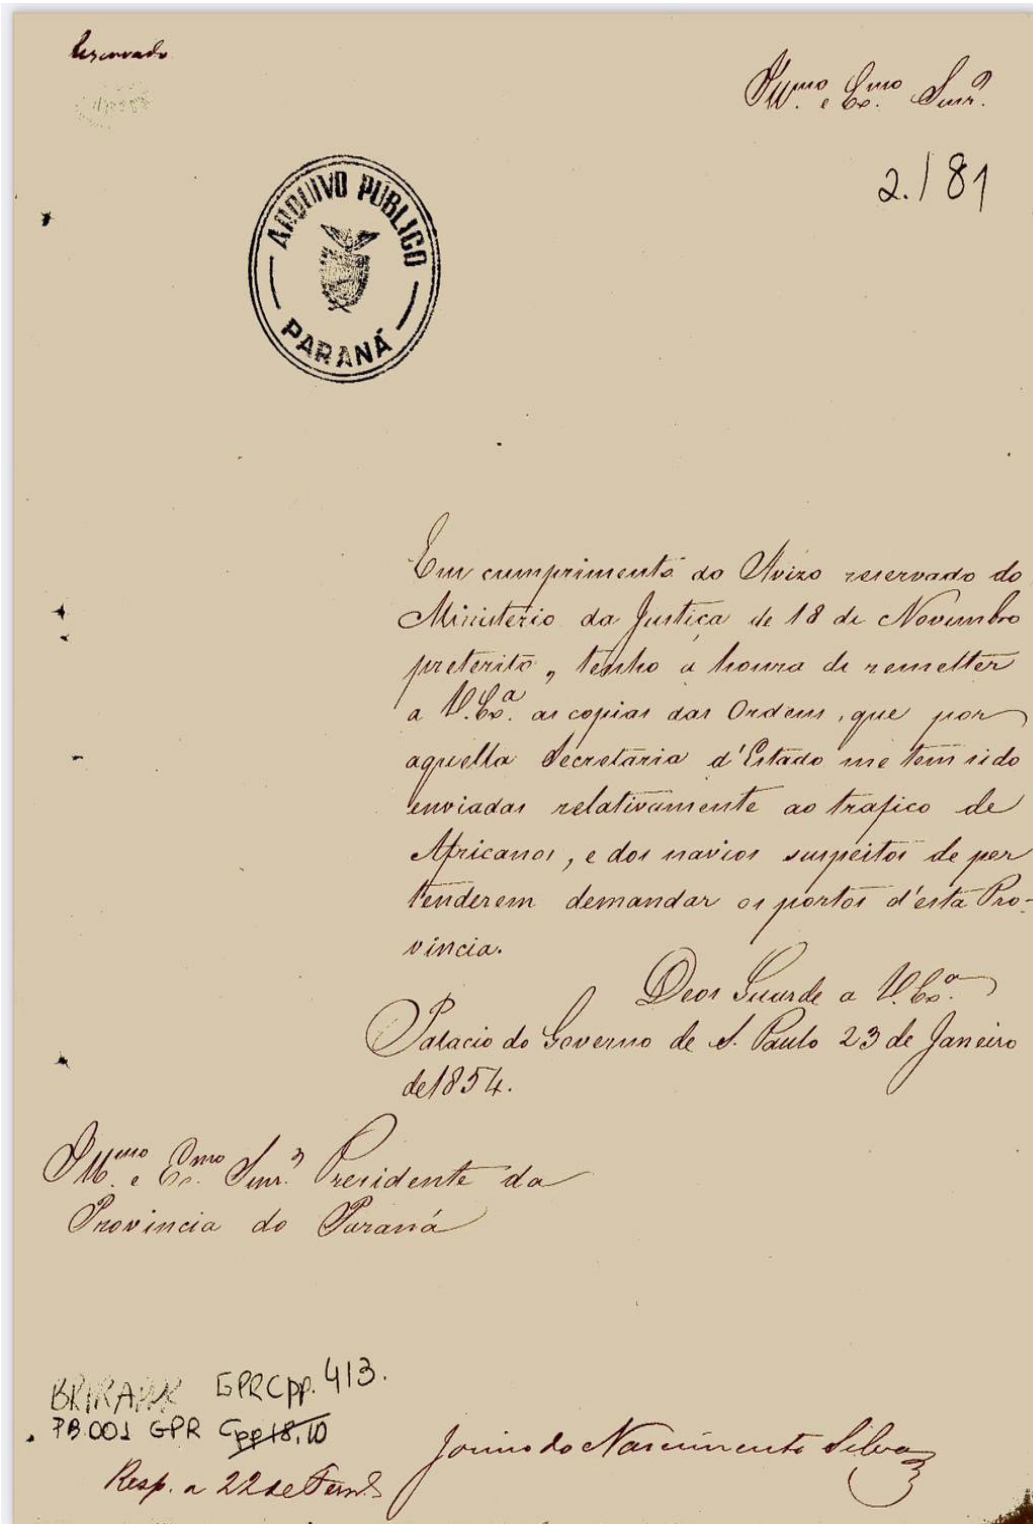 Reservado
Ill.mo e Ex.mo Snr.
2./81
ARQUIVO PÚBLICO
PARANÁ
Em cumprimento do Avizo reservado do
Ministerio da Justiça de 18 de Novembro
preterito, tenho a honra de remetter
a V. Ex.a as copias das Ordens, que por
aquella Secretaria d'Estado me tem sido
enviadas relativamente ao trafico de
Africanos, e dos navios suspeitos de per
tenderem demandar os portos d'esta Pro-
vincia.
Deos Guarde a V. Ex.a
Palacio do Governo de S. Paulo 23 de Janeiro
de 1854.
Ill.mo e Ex.mo Snr. Presidente da
Provincia do Paraná
GPRCpp. 413.
PB.001 GPR Cpp18.10
Josino do Nascimento Silva
Resp. a 22 de